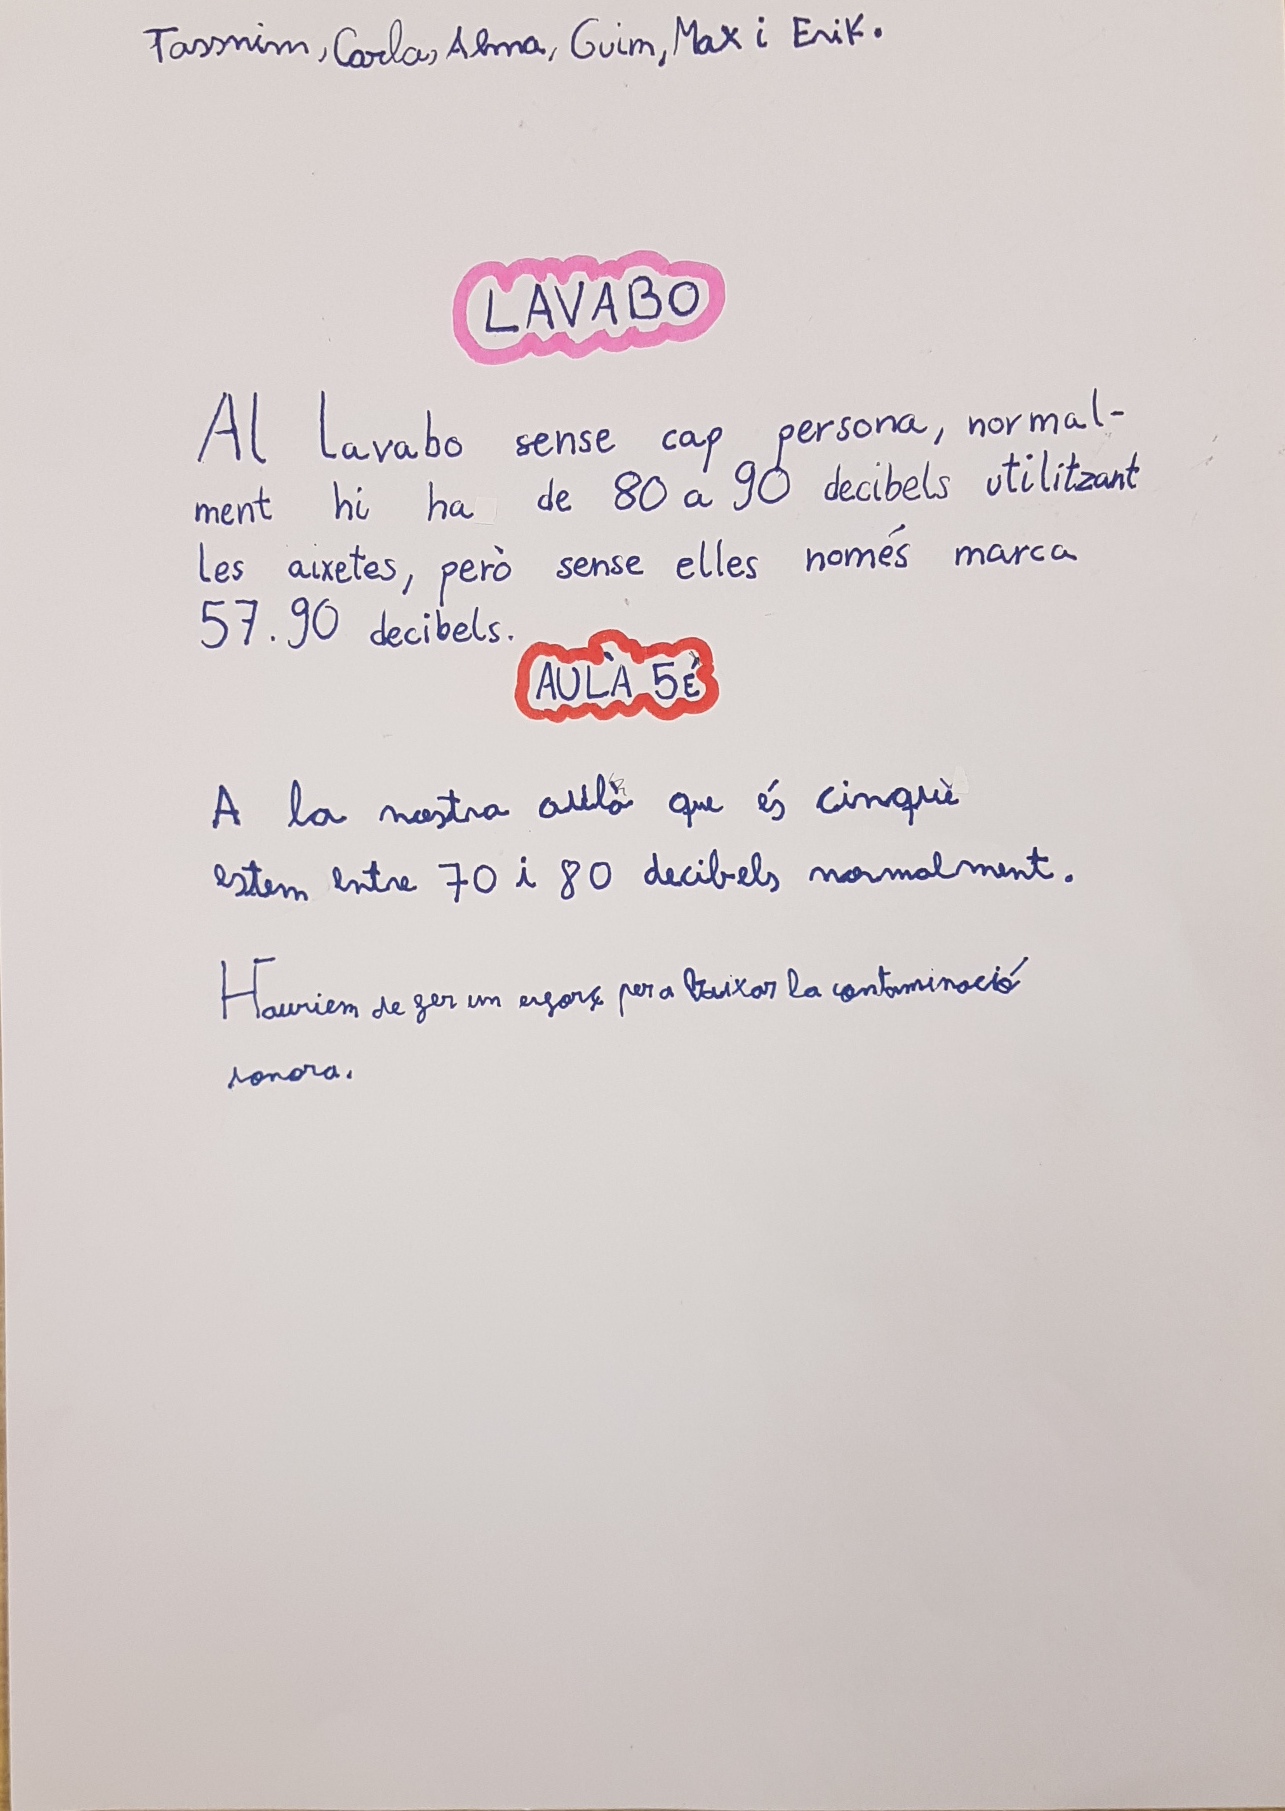 Tassnim, Carla, Alma, Guim, Max i Erik.
LAVABO
Al lavabo sense cap persona, normal-
ment hi ha de 80 a 90 decibels utilitzant
les aixetes, però sense elles només marca
57.90 decibels.
AULÀ 5È
A la nostra aulà que és cinquè
estem entre 70 i 80 decibels normalment.
Hauriem de fer un esforç per a baixar la contaminació
sonora.